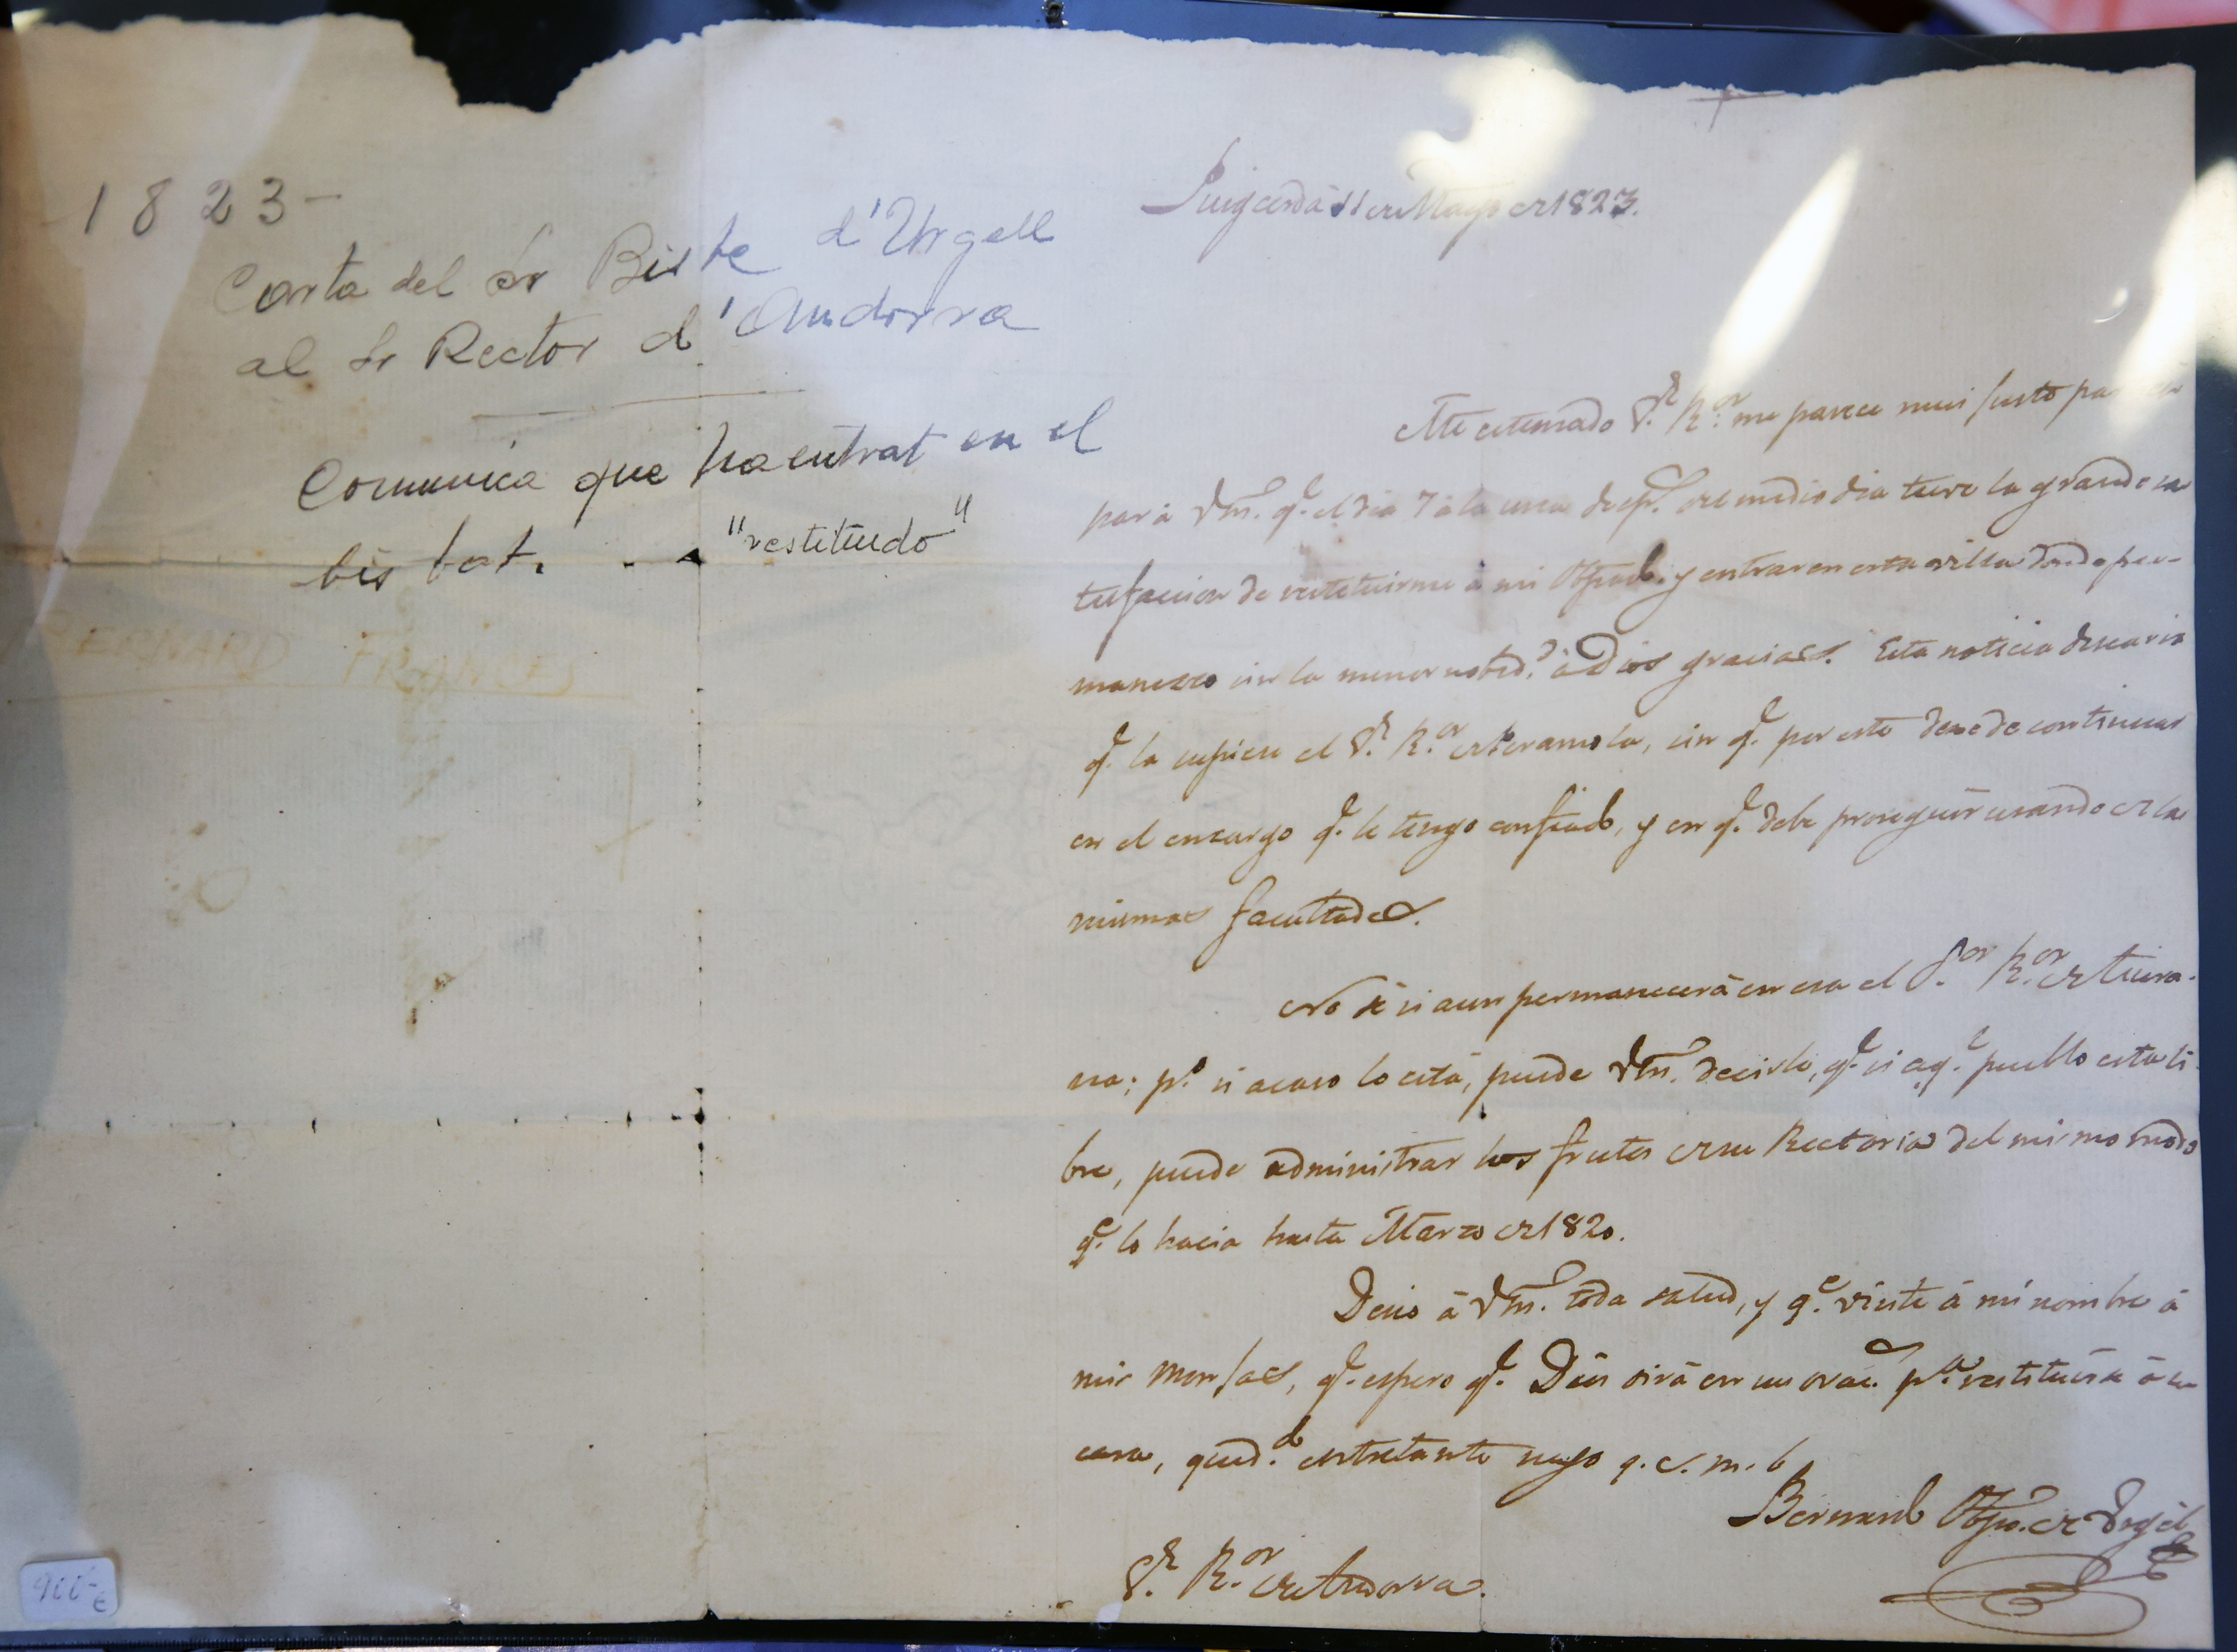 1823-
Carta del Sr Bisbe d'Urgell
al Sr Rector d'Andorra
Comunica que ha entrat en el
bisbat. - - "restituido"
BERNARD FRANCES
Puigcerdá 11 de Mayo de 1823.
Mi estimado Sr. Ror. me parece mui justo
par á Vm. qe. el dia 7 á la una desps. del medio dia tuve la grande sa
tisfaccion de restituirme á mi Obpado. y entrar en esta villa donde per-
manezco sin la menor noved.d á Dios gracias. Esta noticia desearia
qe. la supiese el Sr. Ror. de, sin qe. por esto dexe de continuar
en el encargo qe. le tengo confiado, y en qe. debe proseguir usando de las
mismas facultades.
No sé si aun permanecerá en esa el Sor. Ror. de Tuixa-
na; po. si acaso lo está, puede Vm. decirle, qe. si aql. pueblo está li-
bre, puede administrar los frutos de su Rectoria del mismo modo
qe. lo hacia hasta Marzo de 1820.
Deseo á Vm. toda salud, y qe. visite á mi nombre á
mis Monjas, qe. espero qe. Dios oirá en sus orac.s pa. restituirse á su
casa, quedo. entretanto suyo q. s. m. b
Bernardo Obpo. de Urgel
Sr. Ror. de Andorra.
900-€